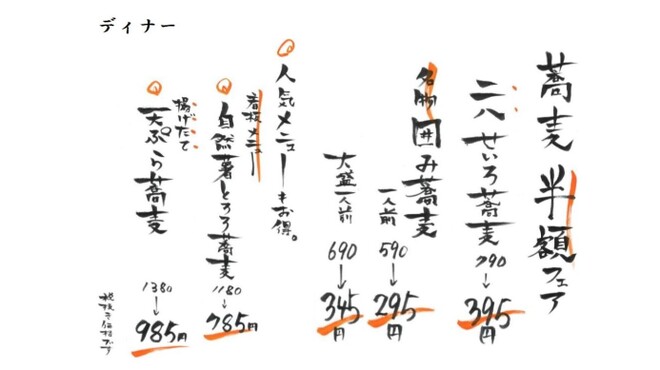 ディナー
蕎麦半額フェア
二八せいろ蕎麦
790
↓
395円
名物囲み蕎麦
一人前
590
↓
295円
大盛一人前
690
↓
345円
人気メニューもお得。
看板メニュー
自然薯とろろ蕎麦
1180
↓
785円
揚げたて
天ぷら蕎麦
1380
↓
985円
税抜き価格です